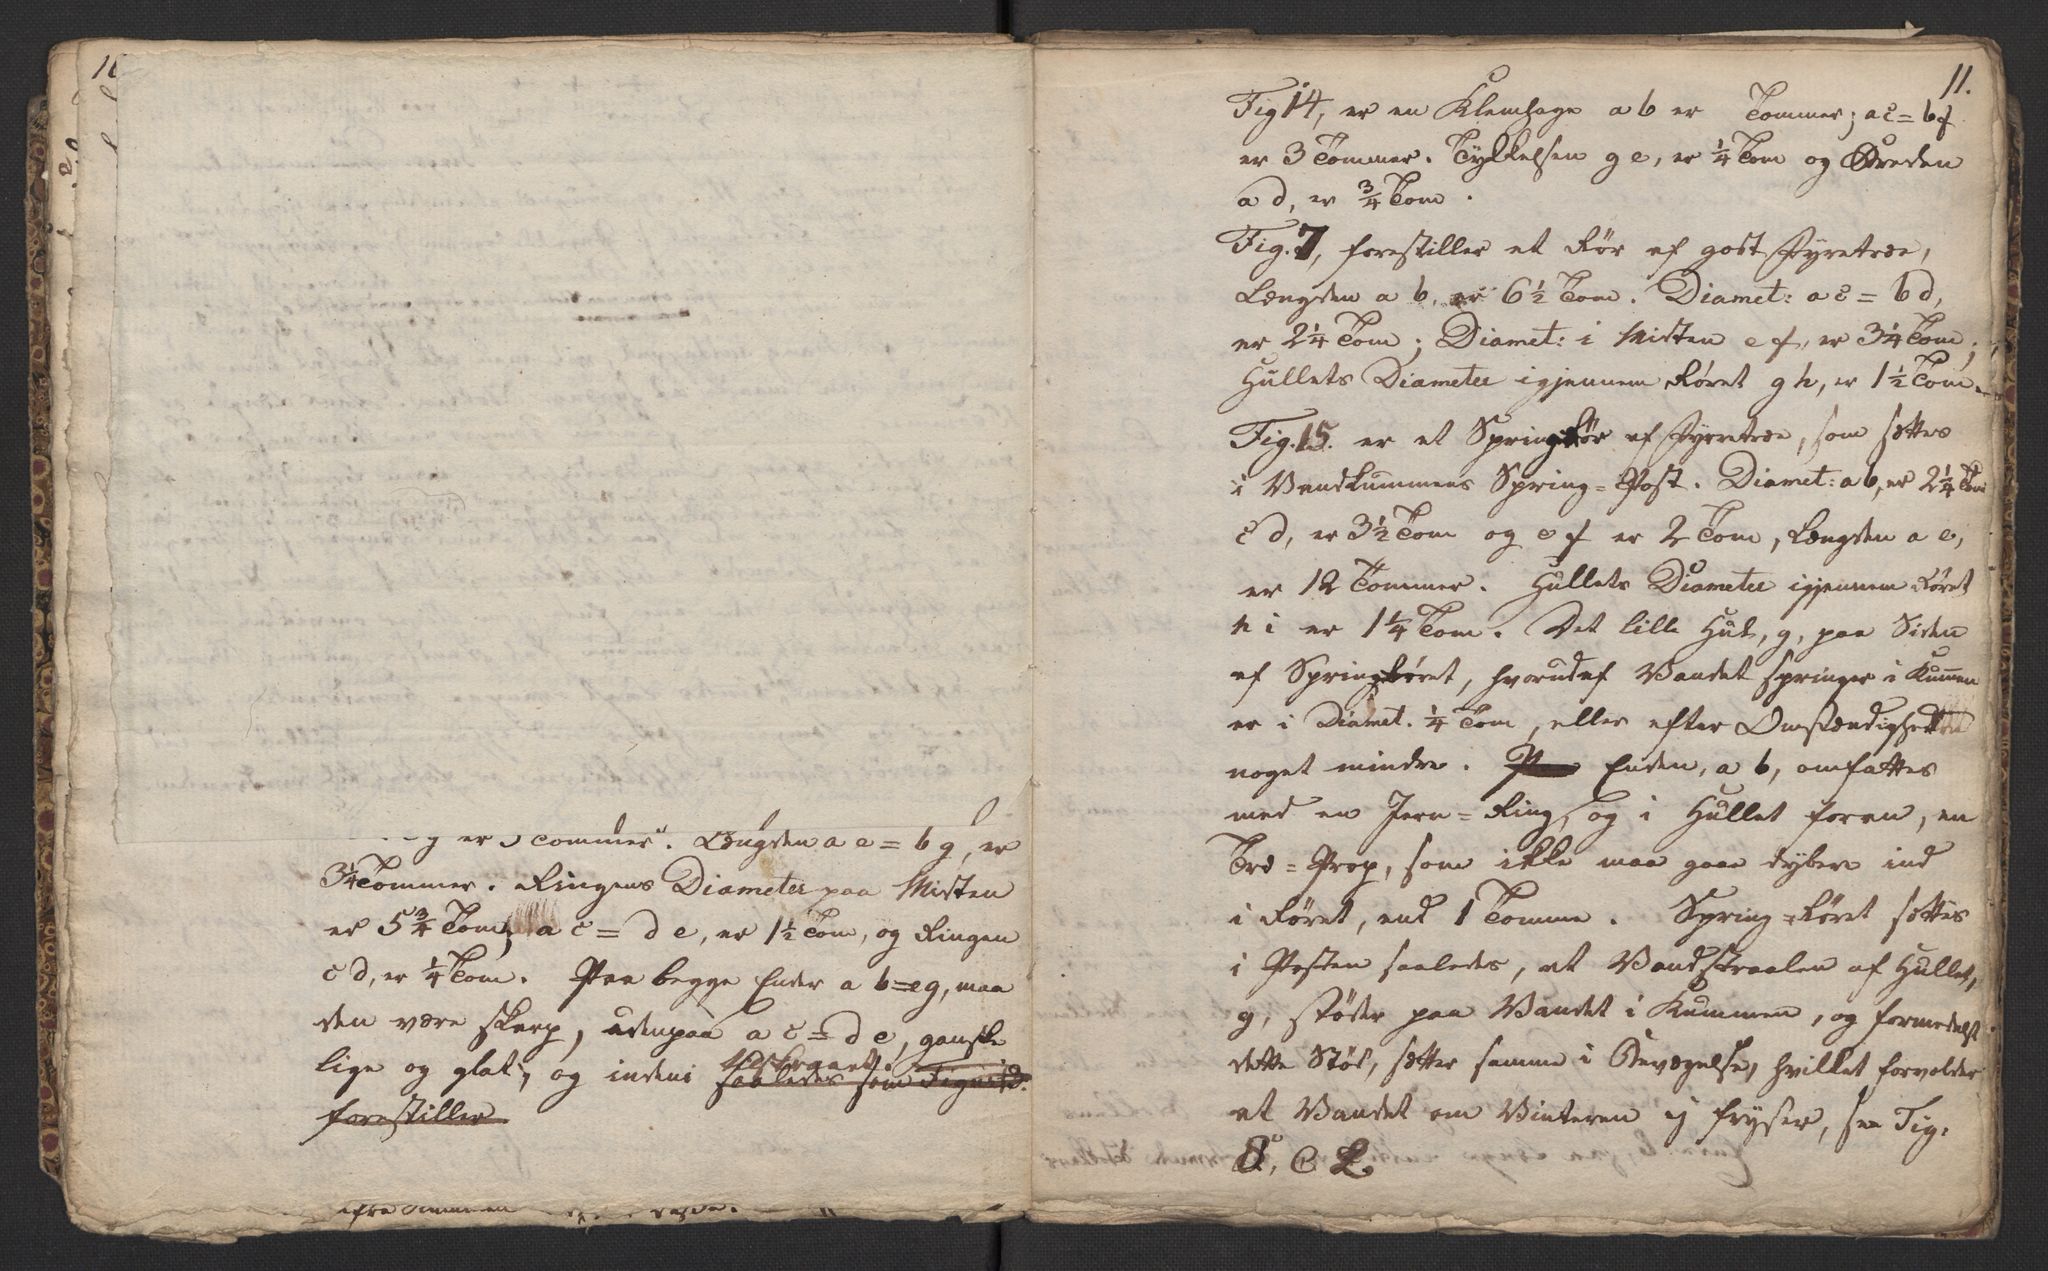 11.
er 3 Tommer. Længden a e = b g, er
3¼ Tommer. Ringens Diameter paa Midten
er 5¾ Tom; a c = d e, er 1½ Tom, og Ringen
c d, er ¼ Tom. Paa begge Ender a b = e g, maa
den være skarp, udenpaa a c = d e, ganske
lige og glat, og indeni saaledes som Fig
forestiller
Fig 14, er en Klemhage a b er Tommer; a c = b f
er 3 Tommer. Tykkelsen g e, er ¼ Tom og Breden
a d, er ¾ Tom.
Fig. 7, forestiller et Rør af godt Fyretræe,
Længden a b, er 6½ Tom. Diamet: a c = b d,
er 2¼ Tom; Diamet: i Midten e f, er 3¼ Tom;
Hullets Diameter igjennem Røret g h, er 1½ Tom.
Fig. 15. er et Springrør af Fyrretræe, som sættes
i Vandkummens Spring-Post. Diamet: a b, er 2¼ Tom
c d, er 3½ Tom og e f er 2 Tom, Længden a e,
er 12 Tommer. Hullets Diameter igjennem Røret
h i er 1¼ Tom. Det lille Hul, g, paa Siden
af Springrøret, hvorudaf Vandet springer i Kummen
er i Diamet. ¼ Tom, eller efter Omstændigheden
noget mindre. Paa Enden, a b, omfattes
med en Jern-Ring, og i Hullet foran, en
Træ-Prop, som ikke maa gaae dybere ind
i Røret, end 1 Tomme. Spring-Røret sættes
i Posten saaledes, at Vandstraalen af Hullet,
g, støder paa Vandet i Kummen, og formedelst
dette Stød, sætter samme i Bevægelse, hvilket forvolder
at Vandet om Vinteren ej fryser, see Fig.
8, C L.